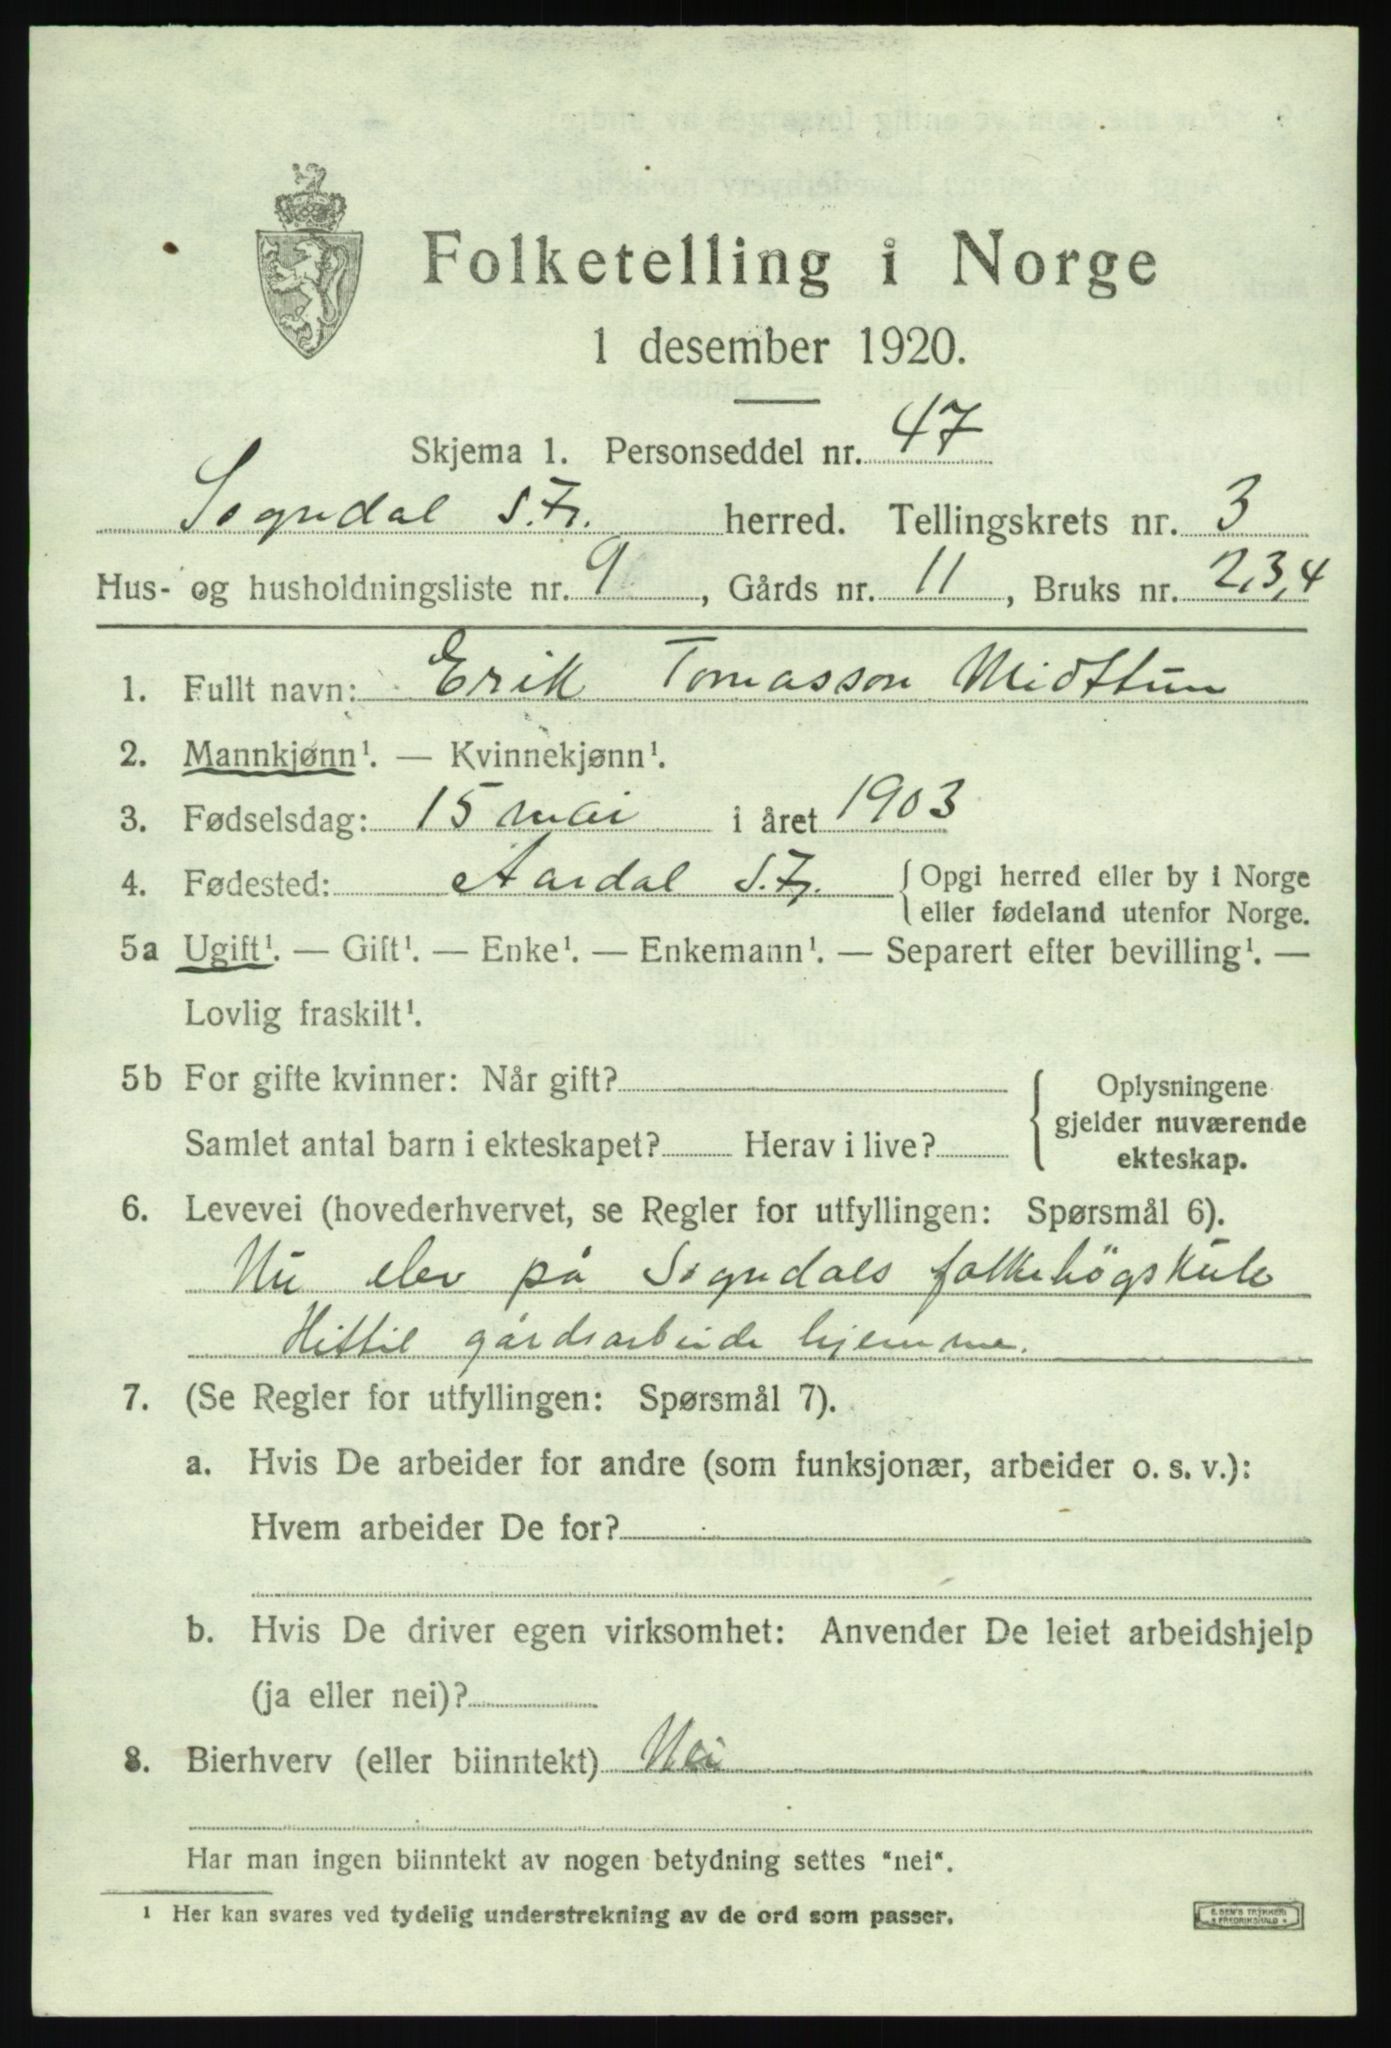 Folketelling i Norge
1 desember 1920.
Skjema 1. Personseddel nr. 47
Sogndal S.Fj. herred. Tellingskrets nr. 3
Hus- og husholdningsliste nr. 9, Gårds nr. 11, Bruks nr. 2,3,4
1. Fullt navn: Erik Tomasson Midttun
2. Mannkjønn¹. — Kvinnekjønn¹.
3. Fødselsdag: 15 mai i året 1903
4. Fødested: Aardal S.Fj. { Opgi herred eller by i Norge
eller fødeland utenfor Norge.
5a Ugift¹. — Gift¹. — Enke¹. — Enkemann¹. — Separert efter bevilling¹. —
Lovlig fraskilt¹.
5b For gifte kvinner: Når gift? { Oplysningene
gjelder nuværende
Samlet antal barn i ekteskapet? Herav i live?
ekteskap.
6. Levevei (hovederhvervet, se Regler for utfyllingen: Spørsmål 6).
Nu elev på Sogndals folkehögskule
Hittil gårdsarbeide hjemme.
7. (Se Regler for utfyllingen: Spørsmål 7).
a. Hvis De arbeider for andre (som funksjonær, arbeider o. s. v.):
Hvem arbeider De for?
b. Hvis De driver egen virksomhet: Anvender De leiet arbeidshjelp
(ja eller nei)?
8. Bierhverv (eller biinntekt) Nei
Har man ingen biinntekt av nogen betydning settes "nei".
¹ Her kan svares ved tydelig understrekning av de ord som passer.